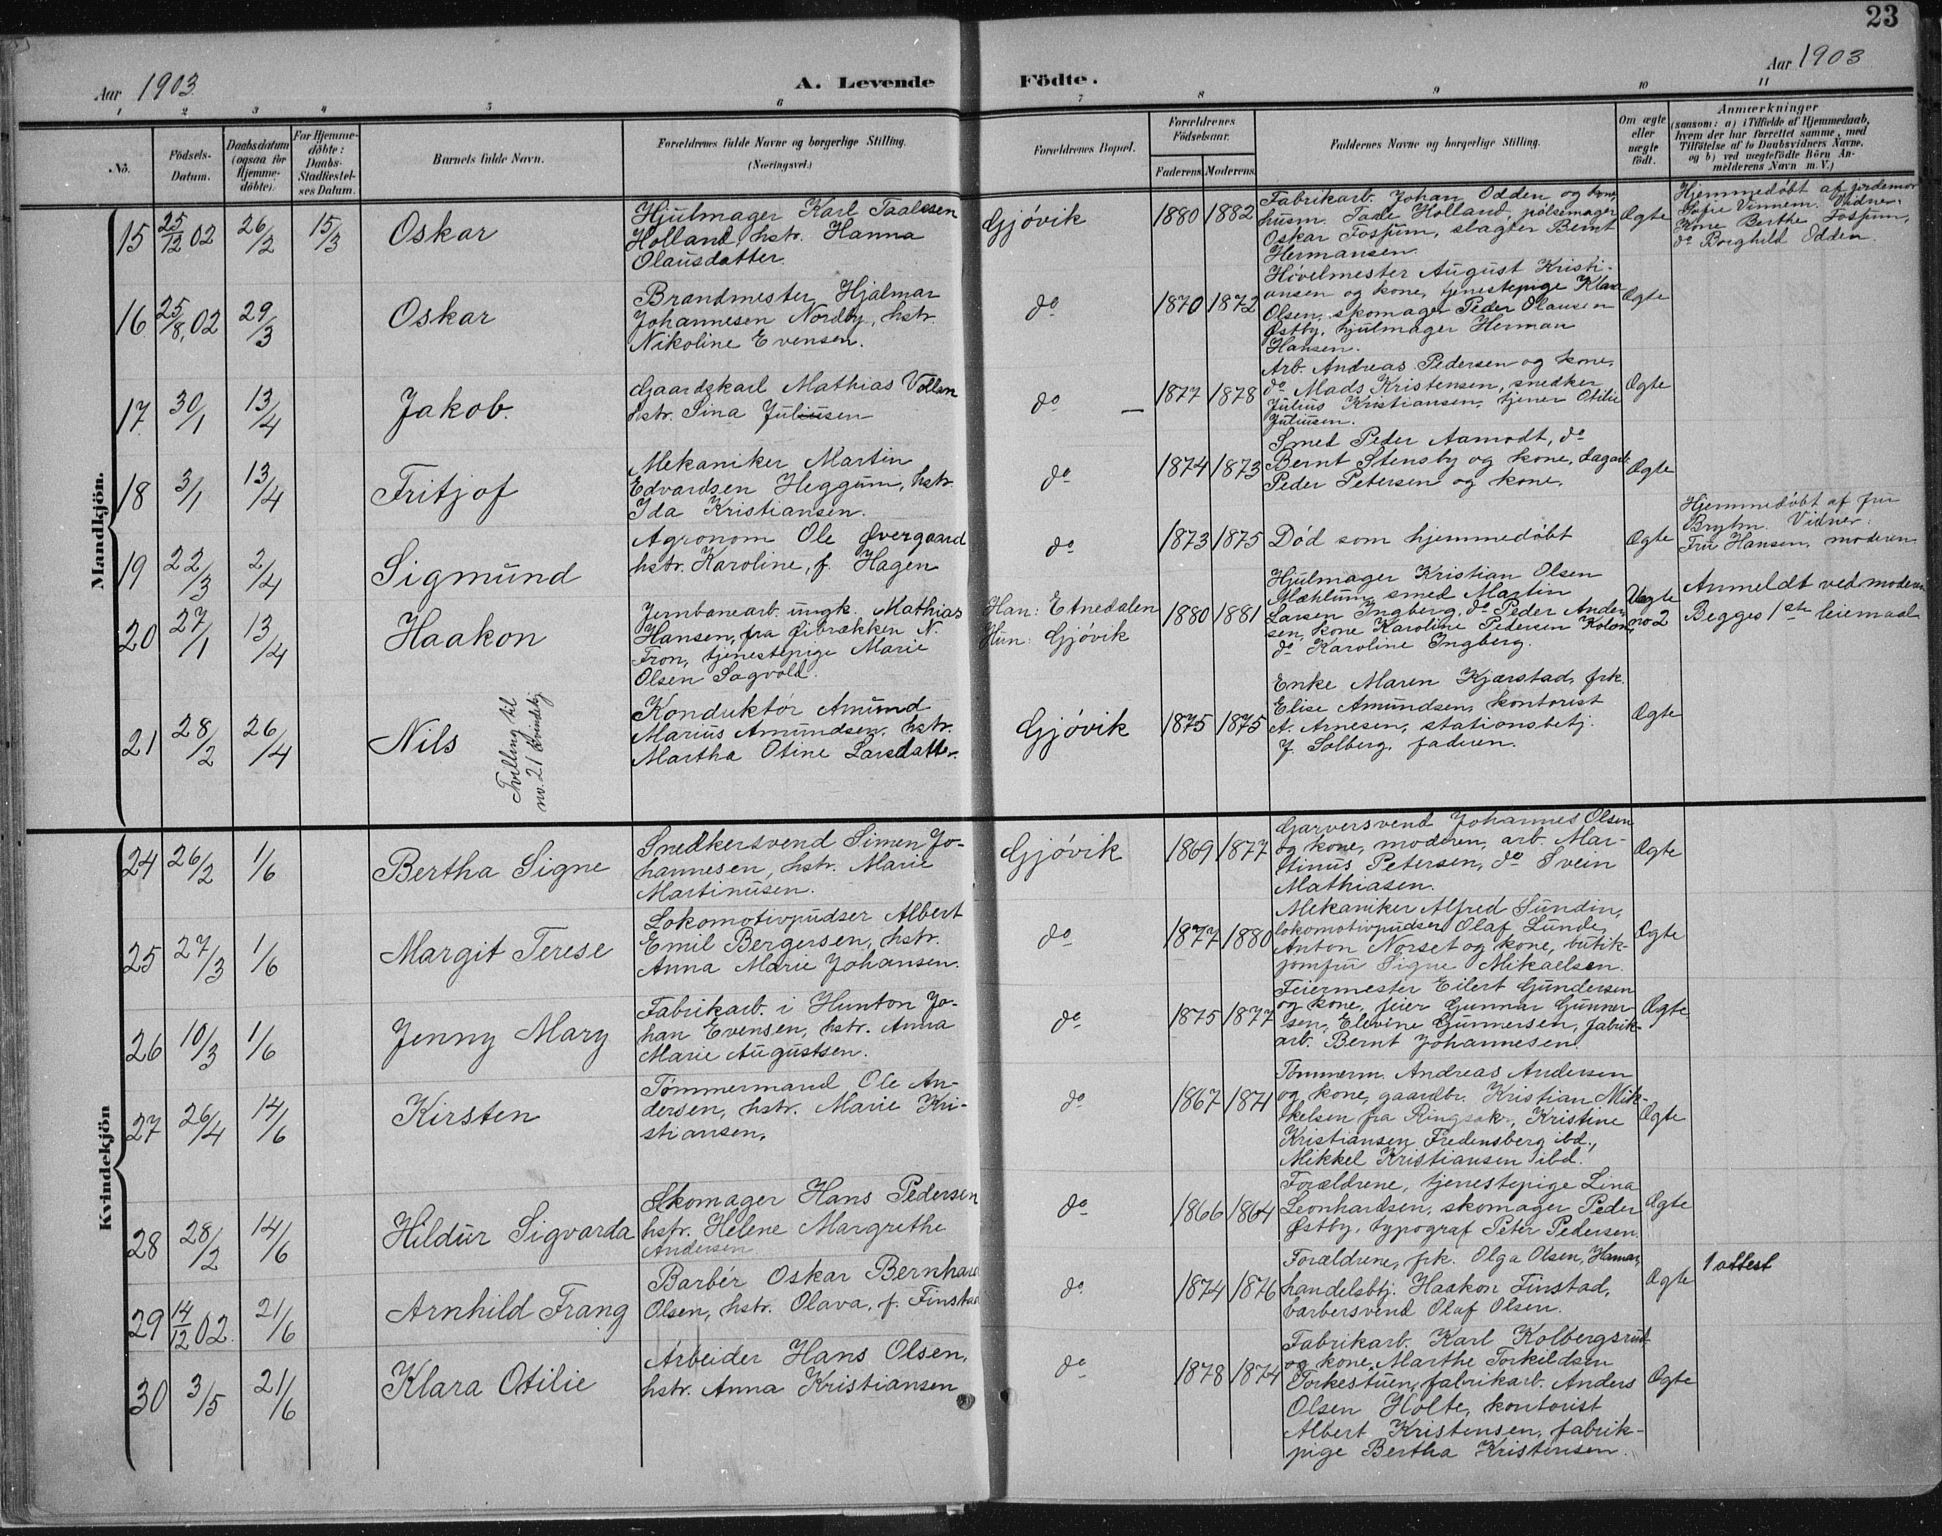 23
Aar 1903.
A. Levende Födte.
Aar 1903
1 2 3 4 5 6 7 8 9 10 11
No.
Födsels-Datum.
Daabsdatum (ogsaa for Hjemmedöbte).
For Hjemmedöbte: Daabs-Stadfæstelses Datum.
Barnets fulde Navn.
Forældrenes fulde Navne og borgerlige Stilling.
(Næringsvei.)
Forældrenes Bopæl.
Forældrenes Födselsaar.
Faderens. Moderens.
Faddernes Navne og borgerlige Stilling.
Om ægte eller uægte födt.
Anmærkninger
(saasom: a) i Tilfælde af Hjemmedaab, hvem der har forrettet samme, med Tilföielse af to Daabsvidners Navne, og b) ved uægtefödte Börn Anmelderens Navn m. V.)
Mandkjön.
15 25/12 02 26/2 15/3 Oskar
Hjulmager Karl Taalesen
Holland, hstr. Hanna
Olausdatter.
Gjøvik 1880 1882
Fabrikarb. Johan Odden og kone,
husm. Tade Holland, pølsemager
Oskar Fossum, slagter Bernt
Hermansen.
Ægte
Hjemmedøbt af jordemor
Sofie Vinnem. Vidner:
Kone Berthe Fossum,
do Borghild Odden.
16 25/8, 02 29/3 Oskar
Brandmester Hjalmar
Johannesen Nordby, hstr.
Nikoline Evensen.
do 1870 1872
Høvelmester August Kristi-
ansen og kone, tjenestepige Klara
Olsen, skomager Peder Olausen
Østby, hjulmager Herman
Hansen.
Ægte
17 30/1 13/4 Jakob.
Gaardskarl Mathias Vollan
hstr. Sina Juliussen
do — 1877 1878
Arb. Andreas Pedersen og kone,
do Mads Kristensen, snedker
Julius Kristiansen, tjener Otilie
Juliusen.
Ægte
18 3/1 13/4 Fritjof
Mekaniker Martin
Edvardsen Heggum, hstr.
Ida Kristiansen.
do 1874 1873
Smed Peder Aamodt, do
Bernt Stensby og kone, dagarb.
Peder Petersen og kone.
Ægte
19 22/3 2/4 Sigmund
Agronom Ole Øvergaard
hstr. Karoline, f. Hagen
do 1873 1875
Död som hjemmedøbt
Ægte
Hjemmedøbt af fru
Bryhn. Vidner:
Fru Hansen, moderen
20 27/1 13/4 Haakon
Jernbanearb. ungk. Mathias
Hansen, fra Øibrækken N.
Fron, tjenestepige Marie
Olsen Sagvold.
Han: Etnedalen
Hun: Gjøvik
1880 1881
Hjulmager Kristian Olsen
Mæhlum, smed Martin
Larsen Ingberg, do Peder Ander-
sen, kone Karoline Pedersen Kolon,
do Karoline Ingberg.
Uægte
no 2
Anmeldt ved moderen
Begges 1ste leiemaal
21 28/2 26/4 Nils
Tvilling til
no. 21 kvindekj.
Konduktør Amund
Marius Amundsen, hstr.
Martha Otine Larsdatter.
Gjøvik 1875 1875
Enke Maren Kjærstad, frk.
Elise Amundsen, kontorist
A. Arnesen, stationsbetj.
J. Solberg, faderen.
Ægte
Kvindekjön
24 26/2 1/6 Bertha Signe
Snedkersvend Simen Jo-
hannesen, hstr. Marie
Martinusen.
Gjøvik 1869 1877
Garversvend Johannes Olsen
og kone, moderen, arb. Mar-
tinus Petersen, do Svein
Mathiasen.
Ægte
25 27/3 1/6 Margit Terese
Lokomotivpudser Albert
Emil Bergersen, hstr.
Anna Marie Johansen.
do 1877 1880
Mekaniker Alfred Sundin,
lokomotivpudser Olaf Lunde,
Anton Norset og kone, butik-
jomfru Signe Mikaelsen.
Ægte
26 10/3 1/6 Jenny Mary
Fabrikarb. i Hunton Jo-
han Evensen, hstr. Anna
Marie Augustsen.
do 1875 1877
Feiermester Eilert Gundersen
og kone, feier Gunnar Gunner-
sen, Elevine Gunnersen, fabrik-
arb. Bernt Johannesen.
Ægte
27 26/4 14/6 Kirsten
Tömmermand Ole An-
dersen, hstr. Marie Kri-
stiansen.
do 1867 1871
Tömmerm. Andreas Andersen
og kone, gaardbr. Kristian Mik-
kelsen fra Ringsak., Kristine
Kristiansen Fredensberg ibd.,
Mikkel Kristiansen ibd.
Ægte
28 28/2 14/6 Hildur Sigvarda
Skomager Hans Pedersen
hstr. Helene Margrethe
Andersen
do 1866 1864
Forældrene, tjenestepige Lina
Leonhardsen, skomager Peder
Østby, typograf Peter Pedersen.
Ægte
29 14/12 02. 21/6 Arnhild Frang
Barbér Oskar Bernhard
Olsen, hstr. Olava, f. Finstad
do 1874 1876
Forældrene, frk. Olga Olsen, Hamar,
handelsbtj. Haakon Finstad,
barbersvend Olaf Olsen.
Ægte
1 attest
30 3/5 21/6 Klara Otilie
Arbeider Hans Olsen,
hstr. Anna Kristiansen
do 1878 1874
Fabrikarb. Karl Kolbergsrud
og kone, Marthe Torkildsen
Torkestuen, fabrikarb. Anders
Olsen Holte, kontorist
Albert Kristensen, fabrik-
pige Bertha Kristensen.
Ægte